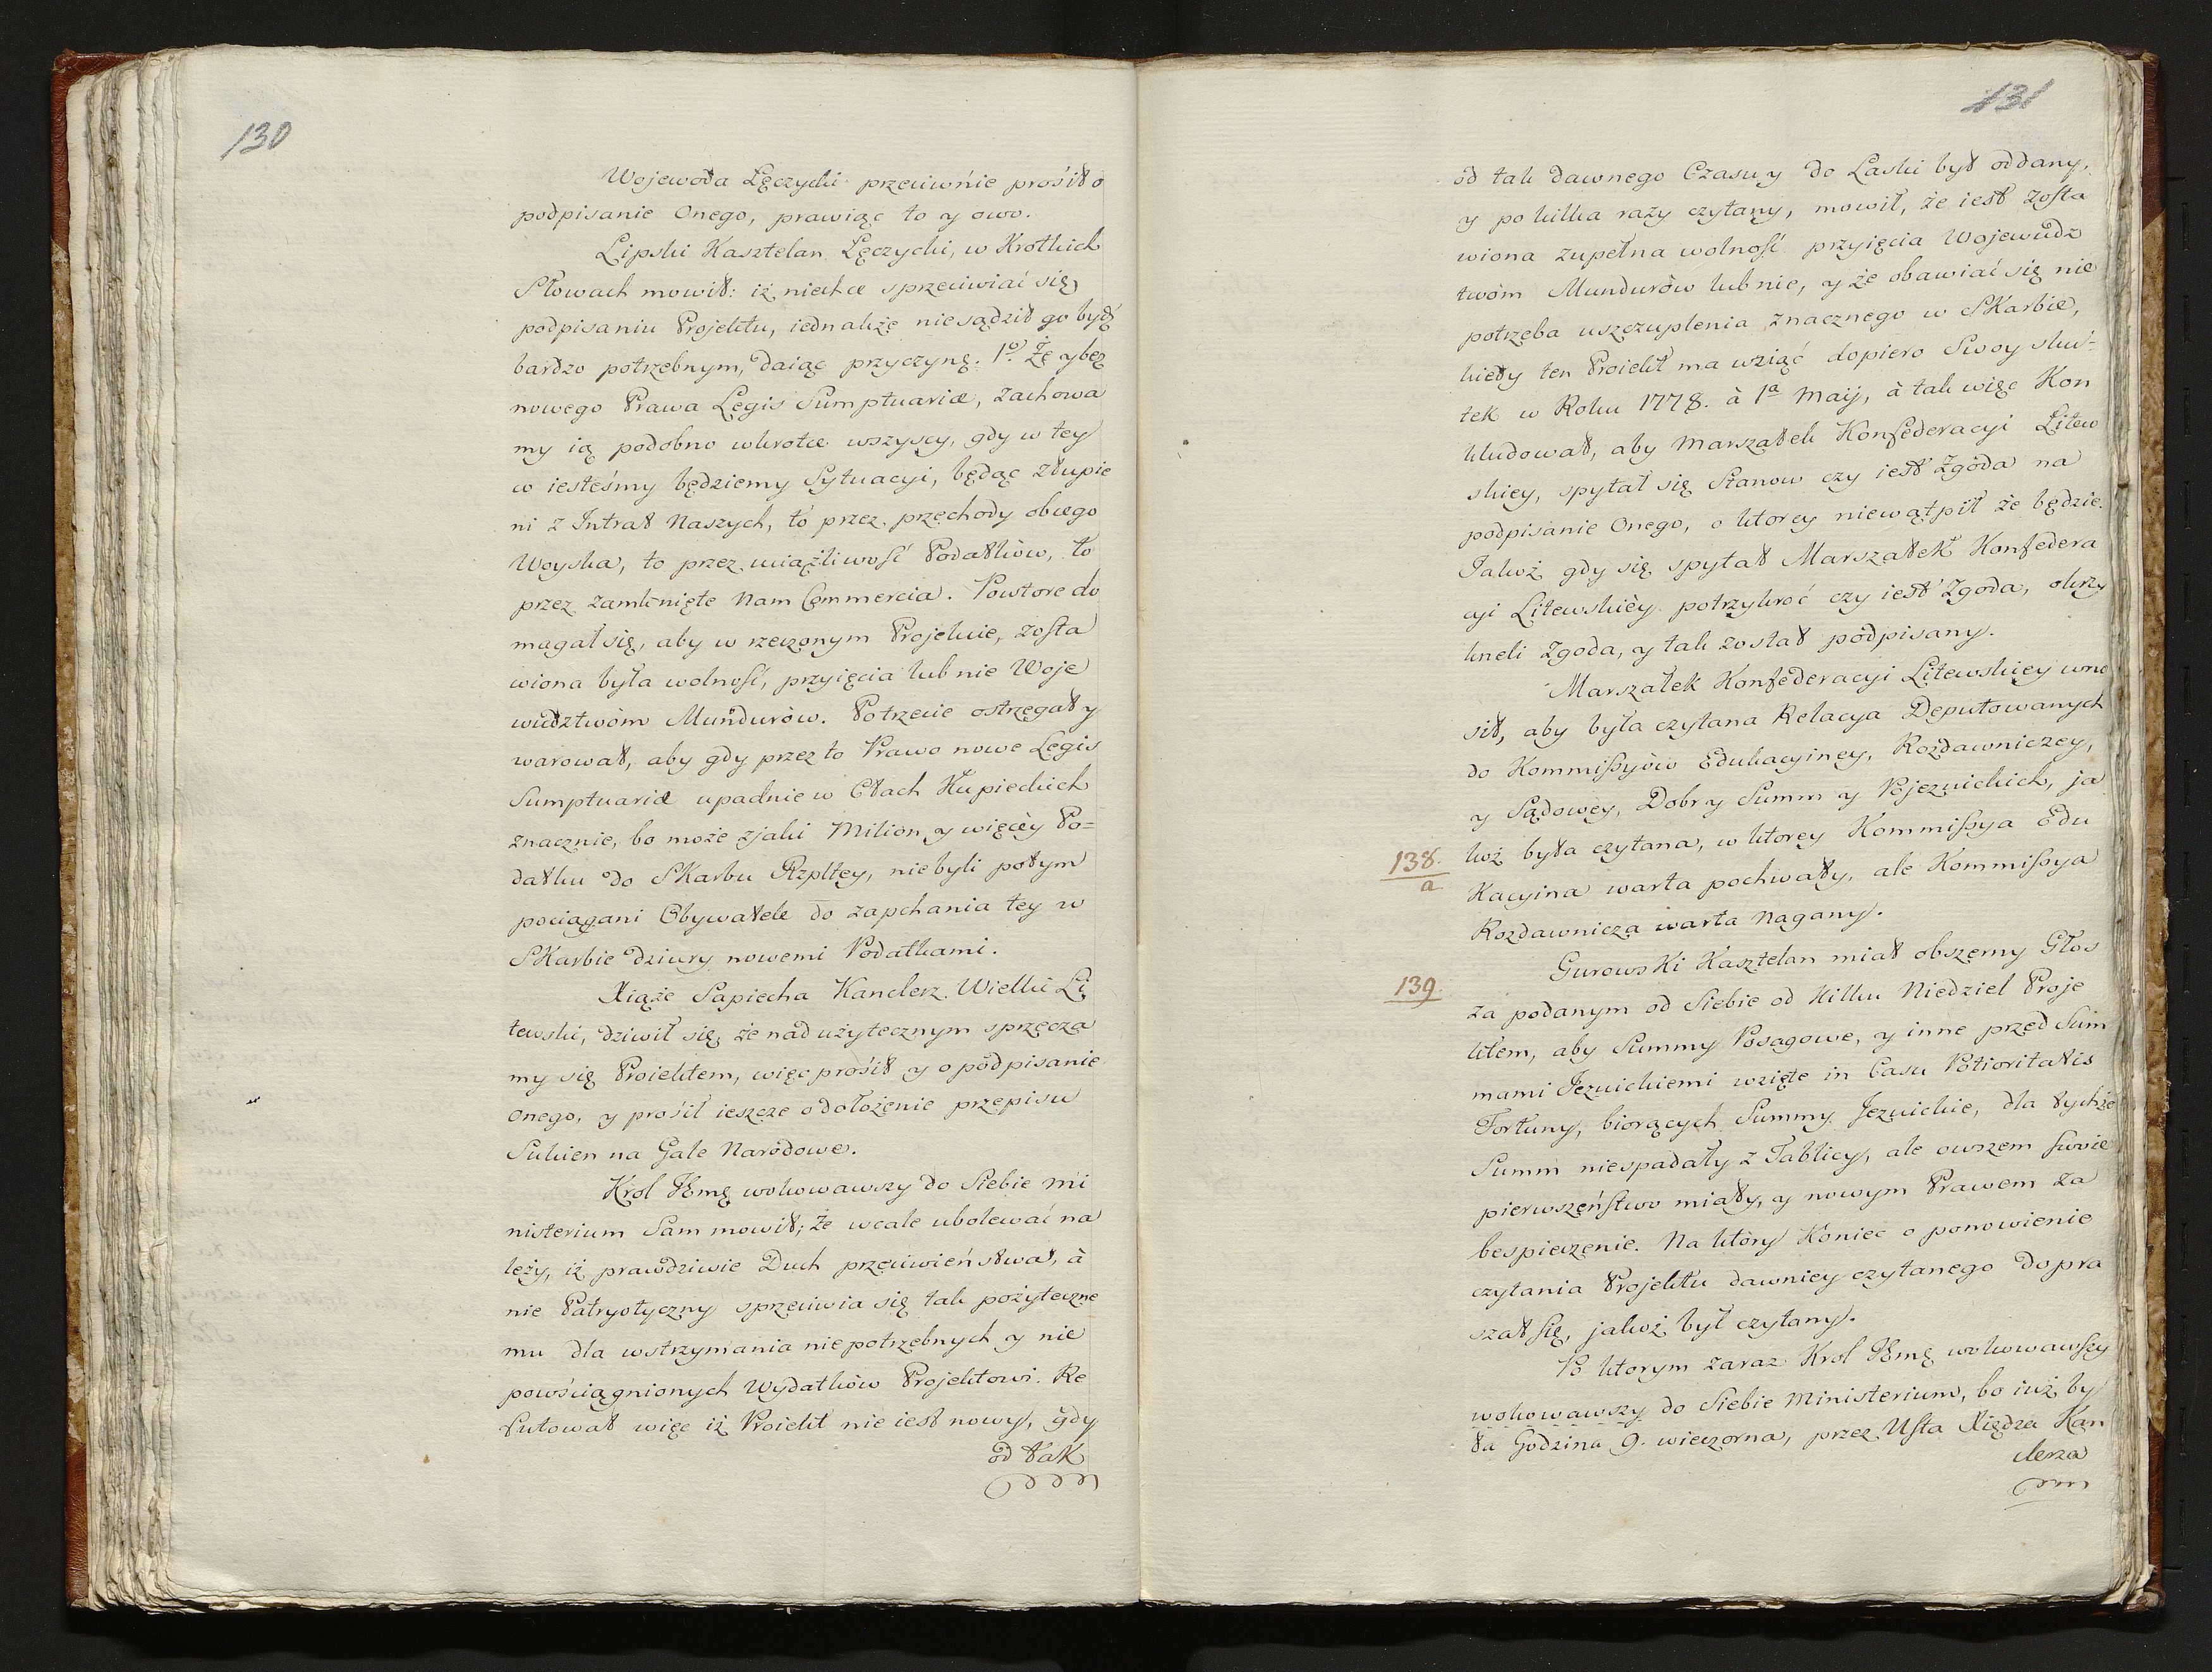 130
Wojewoda Łęczycki przeciwnie prosił o
podpisanie Onego, prawiąc to y owo.
Lipski Kasztelan Łęczycki, w Krotkich
Słowach mowił: iż niechce sprzeciwiać się
podpisaniu Projektu, iednakże niesądził go być
bardzo potrzebnym, daiąc przyczynę. 1º Że y bez
nowego Prawa Legis Sumptuariæ, zachowa
my ią podobno wkrotce wszyscy, gdy w tey
co iesteśmy będziemy Sytuacyi, będąc złupie
ni z Intrat Naszych, to przez przechody obcego
Woyska, to przez uciążliwość Podatków, to
przez zamknięte Nam Commercia. Powtore do
magał się, aby w rzeczonym Projekcie, zosta
wiona była wolność, przyięcia lub nie Woje
wudztwòm Mundurów. Potrzecie ostrzegał y
warował, aby gdy przez to Prawo nowe Legis
Sumptuariæ upadnie w Cłach Kupieckich
znacznie, bo może zjaki Milion y więcèy Po=
datku do SKarbu Rzpltey, niebyli potym
pociągani Obywatele do zapchania tey w
SKarbie dziury nowemi Podatkami.
Xiąże Sapiecha Kanclerz Wielki Li
tewski, dziwił się, że nad użytecznym sprzecza
my się Proiektem, więc prosił y o podpisanie
onego, y prosił ieszcze o dołożenie przepisu
Sukien na Gale Narodowe.
Krol JEmę wokowawszy do Siebie Mi
nisterium Sam mowił; że wcale ubolewać na
leży, iż prawdziwie Duch przeciwieństwa, à
nie Patryotyczny sprzeciwia się tak pożyteczne
mu dla wstrzymania niepotrzebnych y nie
powściągnionych Wydatków Projektowi. Re
putował więc iż Proiekt nie iest nowy, gdy
od tak
131
od tak dawnego Czasu y do Laski był oddany,
y po kilka razy czytany, mowił, że iest zosta
wiona zupełna wolność przyięcia Wojewudz
twòm Mundurów lub nie, y że obawiać się nie
potrzeba uszczuplenia znacznego w SKarbie,
kiedy ten Proiekt ma wziąć dopiero Swoy sku-
tek w Roku 1778. à 1ª Maij, à tak więc Kon
kludował, aby Marszałek Konfederacyi Litew
skiey, spytał się Stanow czy iest Zgoda na
podpisanie Onego, o ktorey niewątpił że będzie.
Jakoż gdy się spytał Marszałek Konfedera
cyi Litewskièy potrzykroć czy iest Zgoda, okrzy
kneli Zgoda, y tak został podpisany.
Marszałek Konfederacyi Litewskiey wno
sił, aby była czytana Relacya Deputowanych
do Kommissyów Edukacyiney, Rozdawniczey,
y Sądowey, Dobr y Summ y Pojezuickich, ja
138. a
koż była czytana, w ktorey Kommissya Edu
Kacyina warta pochwały, ale Kommissya
Rozdawnicza warta Nagany.
139
GurowsKi Kasztelan miał obszerny Głos
za podanym od Siebie od Kilku Niedziel Proje
ktem, aby Summy Posagowe, y inne przed Sum
mami Jezuickiemi wzięte in Casu Potioritatis
Fortuny, biorących Summy Jezuickie, dla tychże
Summ niespadały z Tablicy, ale owszem swoie
pierwszeństwo miały, y nowym Prawem za
bespieczenie. Na który Koniec o ponowienie
czytania Projektu dawniey czytanego dopra
szał się, jakoż był czytany.
Po ktorym zaraz Krol JEmę wokowawszy
wokowawszy do Siebie Ministerium, bo iuż by
ła Godzina 9. wieczorna, przez Usta Xiędza Kan
clerza